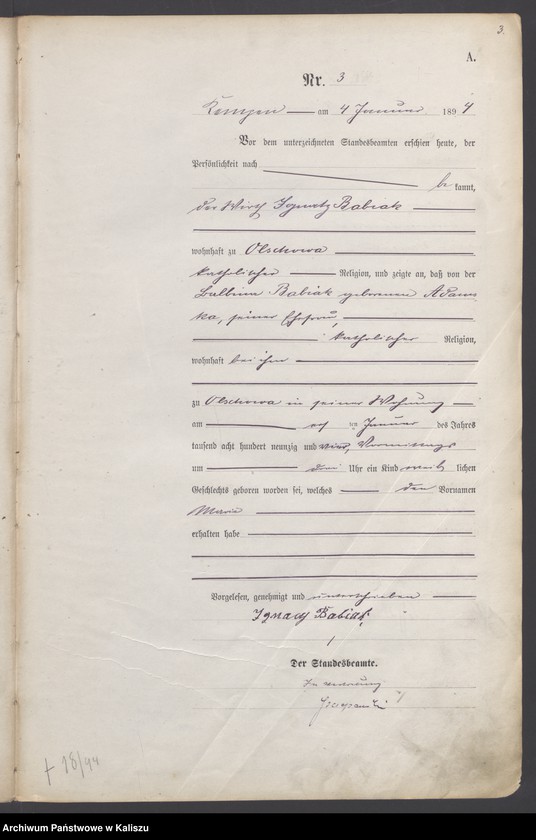 3.
A.
Nr. 3
Kempen am 4 Januar 1894
Vor dem unterzeichneten Standesbeamten erschien heute, der
Persönlichkeit nach
be kannt,
der Wirth Ignatz Babiak
wohnhaft zu Olschowa
katholischer Religion, und zeigte an, daß von der
Balbina Babiak geborenen Adams
ka, seiner Ehefrau,
katholischer Religion,
wohnhaft bei ihm
zu Olschowa in seiner Wohnung
am ten Januar des Jahres
tausend acht hundert neunzig und vier, Vormittags
um drei Uhr ein Kind weib lichen
Geschlechts geboren worden sei, welches den Vornamen
Maria
erhalten habe
Vorgelesen, genehmigt und unterschrieben
Ignacy Babiak
Der Standesbeamte.
In Vertretung
† 18/94
Archiwum Państwowe w Kaliszu